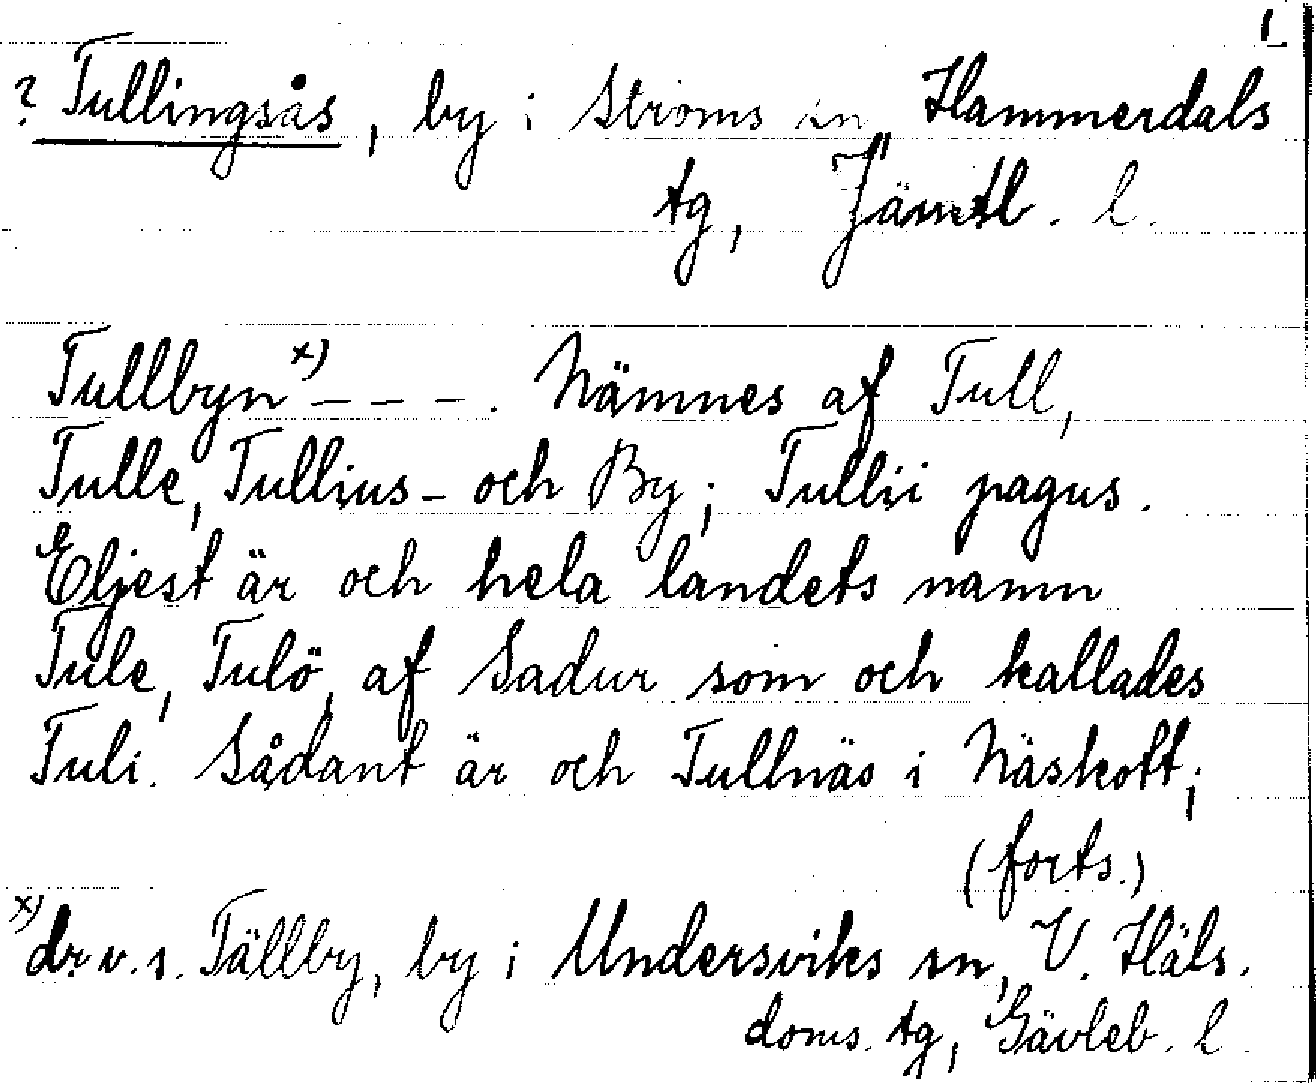 1
? Tullingsås, by i Ströms sn, Hammerdals
tg, Jämtl. l.
Tullbyn x) - - - . Nämnes af Tull,
Tulle, Tullius- och By; Tullii pagus.
Eljest är och hela landets namn
Tule, Tulö, af Sadur som och kallades
Tuli. Sådant är och Tullnäs i Näskott;
(forts.)
x) d.v.s. Tällby, by i Undersviks sn, V. Häls.
doms. tg, Gävleb. l.